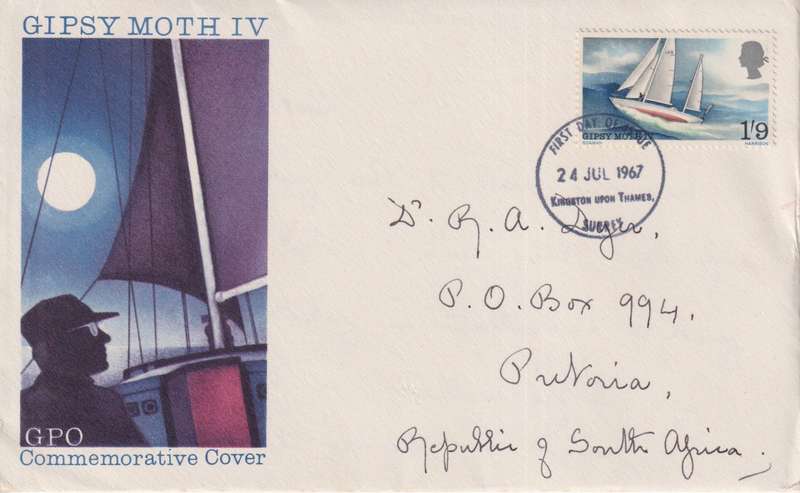 GIPSY MOTH IV
GPO
Commemorative Cover
GIPSY MOTH IV
1'9
HARRISON
FIRST DAY OF ISSUE
24 JUL 1967
KINGSTON UPON THAMES,
SURREY
Dr. R. A. Dyer,
P. O. Box 994,
Pretoria,
Republic of South Africa.